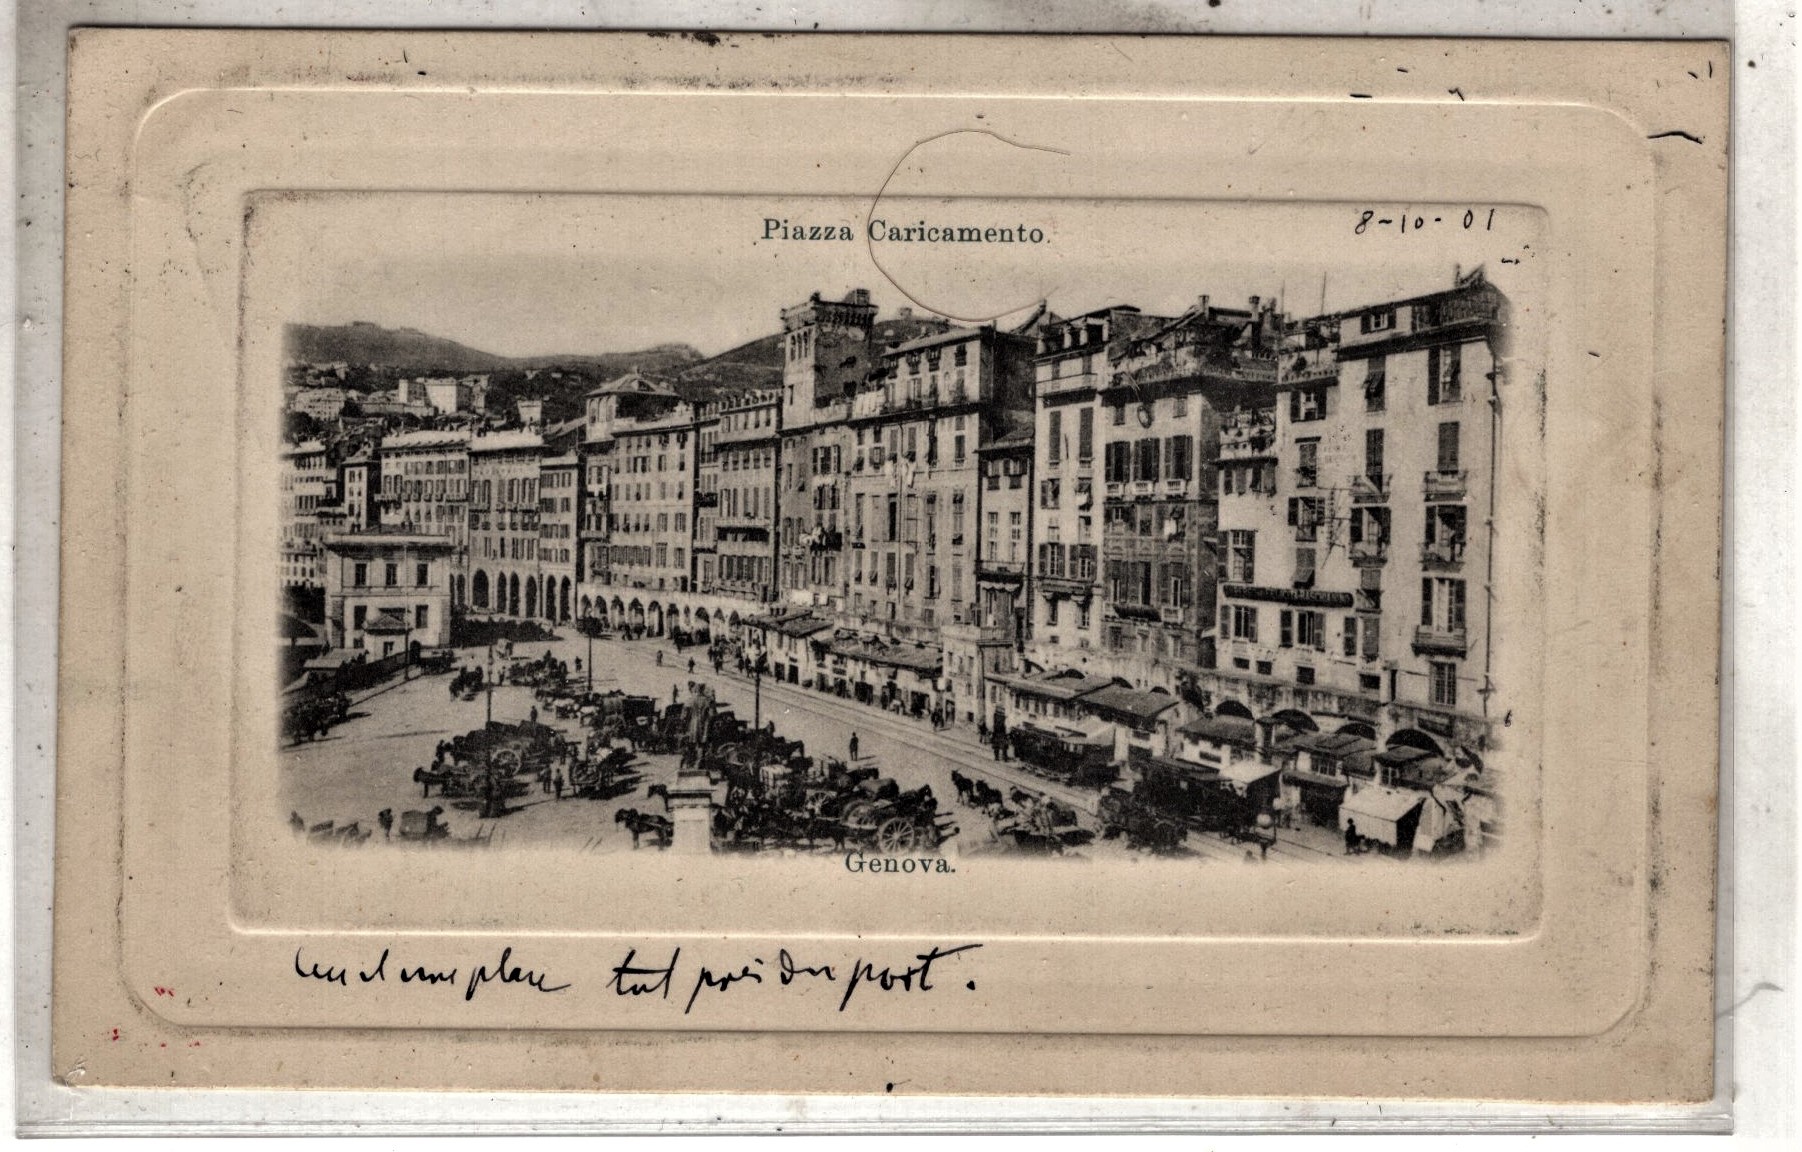 Piazza Caricamento.
8-10-01
Genova.
place tout près du port.